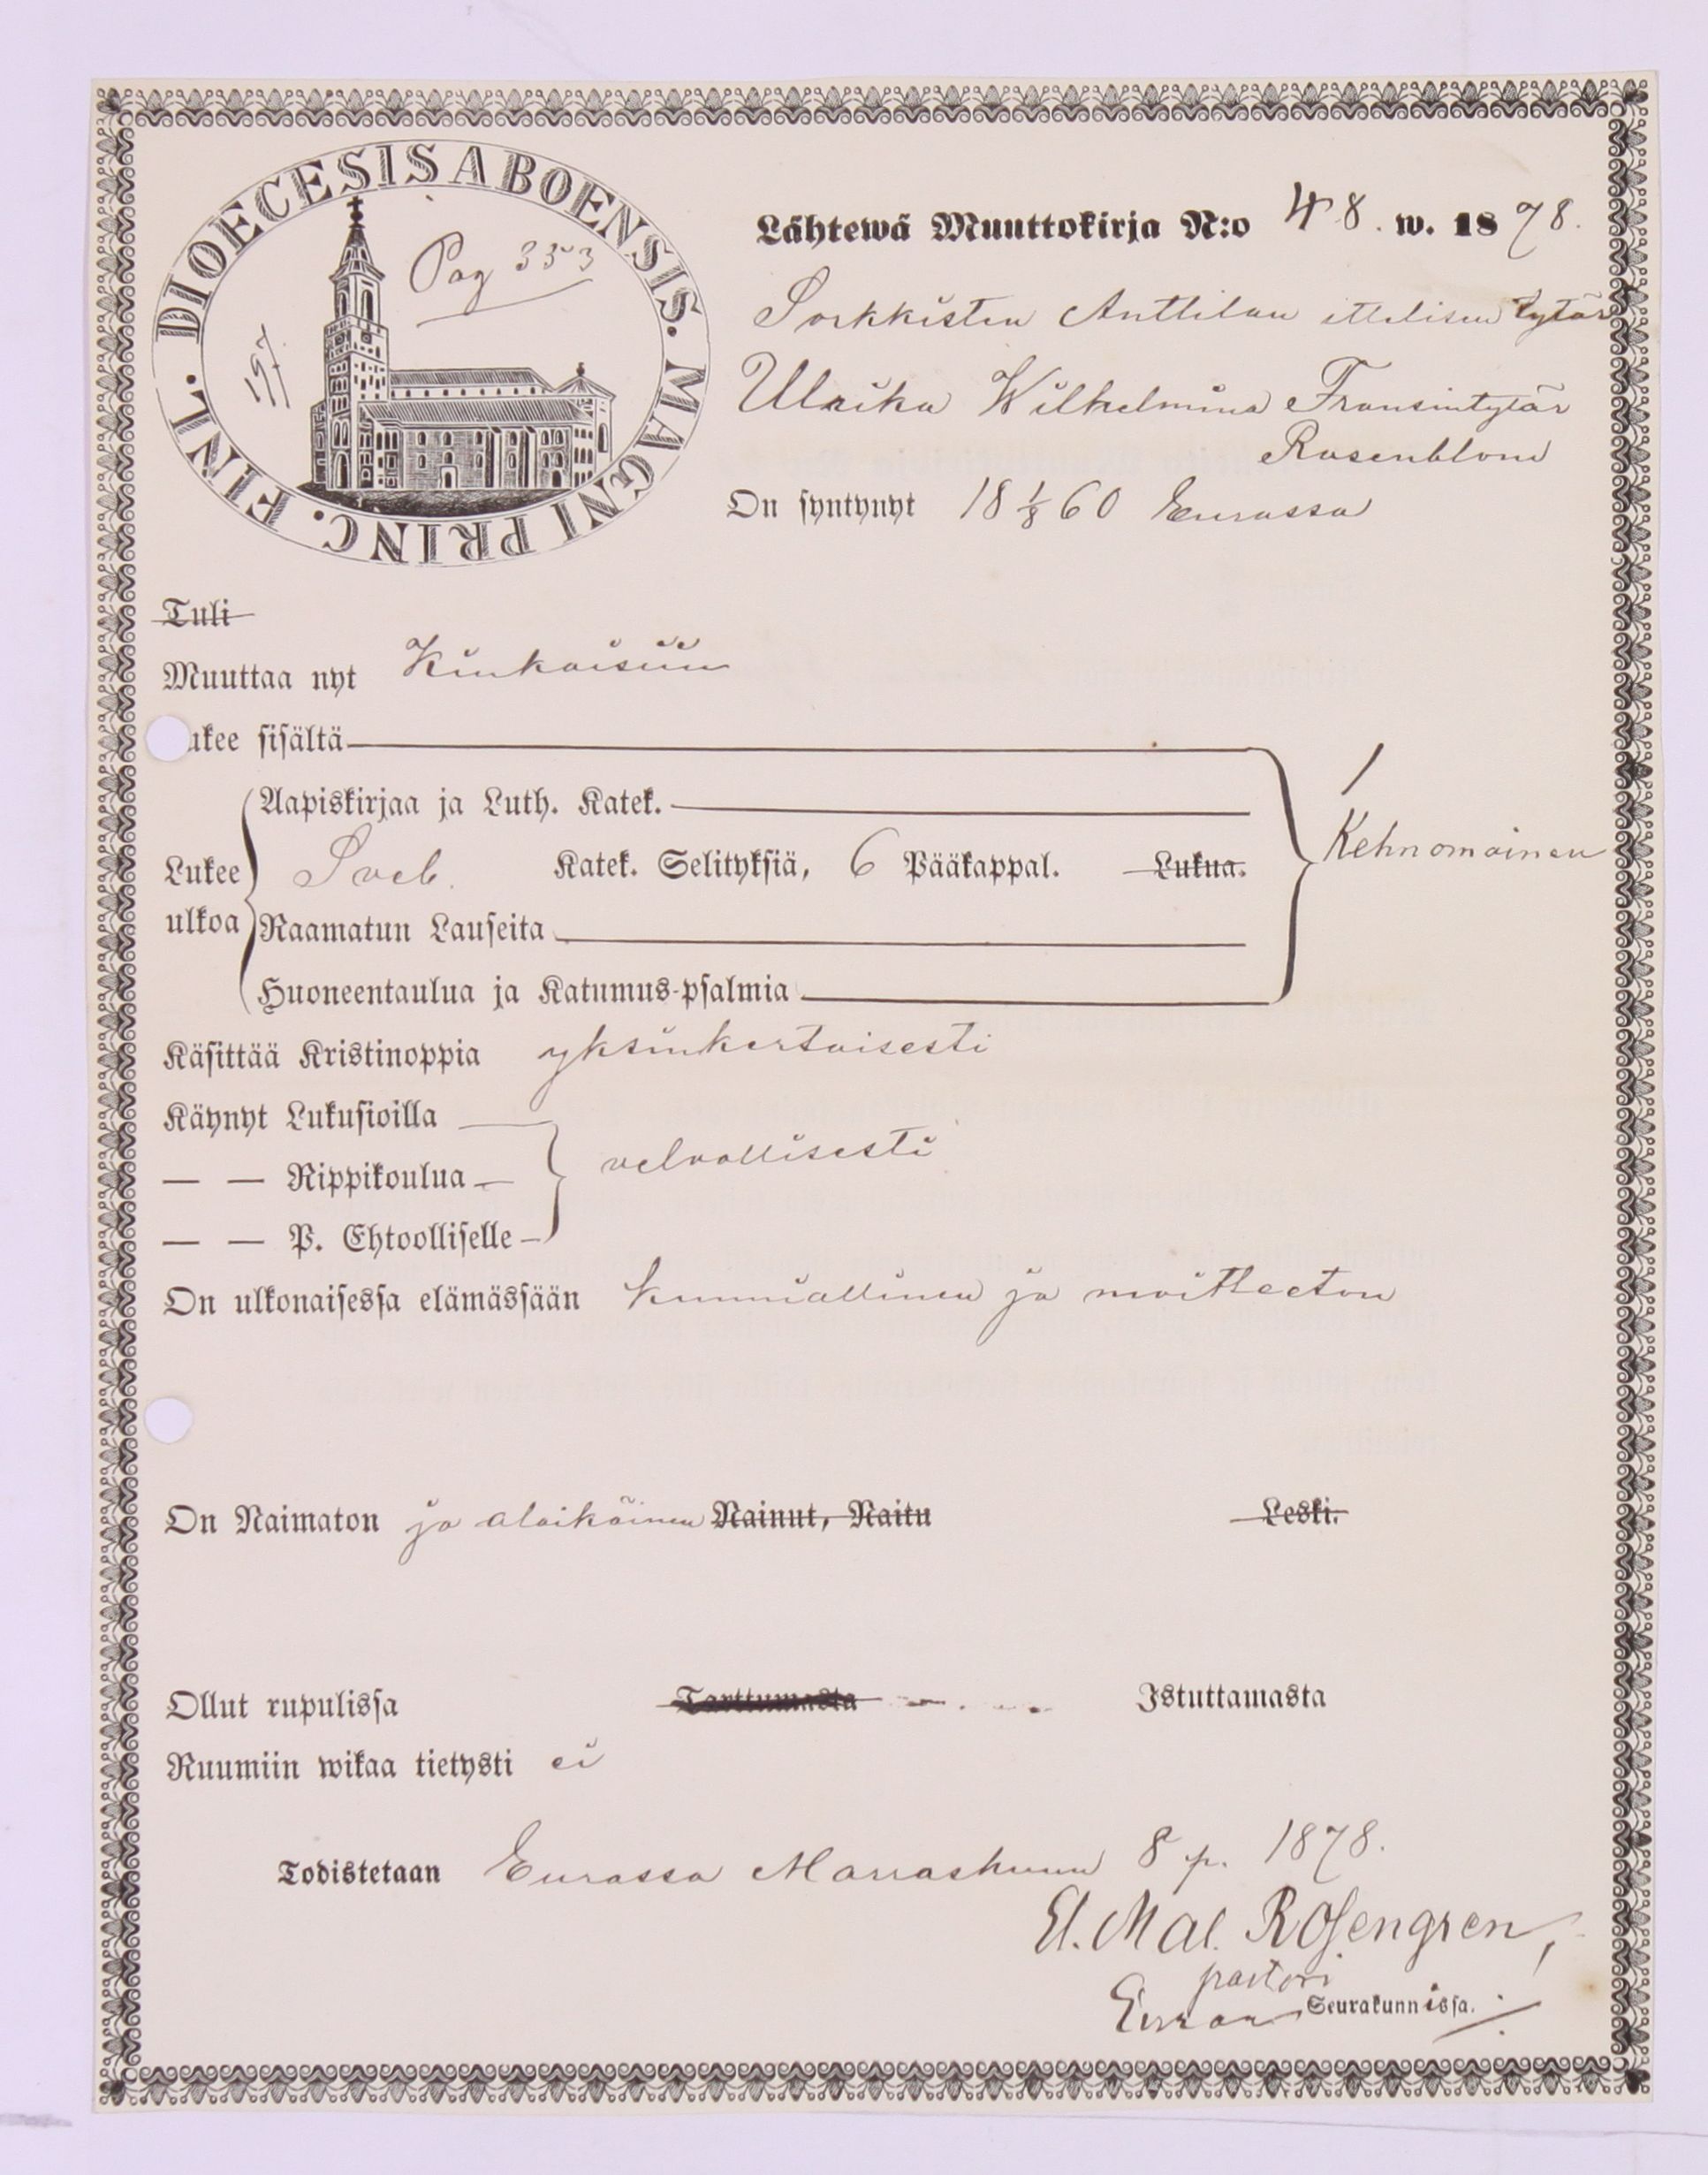 DIOECESIS ABOENSIS. MAGNI PRINC. FINL.
Pag 353
197.
Lähtewä Muuttokirja N:o 48. w. 1878.
Sorkkisten Anttilan ittelisen tytär
Ulrika Wilhelmina Fransintytär
Rosenblom
On syntynyt 18 1/8 60 Eurassa
Tuli
Muuttaa nyt Kiukaisiin
ukee sisältä
Aapiskirjaa ja Luth. Katek.
Kehnomainen
Lukee ulkoa Sveb. Katek. Selityksiä, 6 Pääkappal. Lukua.
Raamatun Lauseita
Huoneentaulua ja Katumus-psalmia
Käsittää Kristinoppia yksinkertaisesti
Käynyt Lukusioilla
velvollisesti
— — Rippikoulua
— — P. Ehtoolliselle
On ulkonaisessa elämässään kunniallinen ja moitteeton
On Naimaton ja alaikäinen Nainut, Naitu Leski.
Ollut rupulissa Tarttumasta Istuttamasta
Ruumiin wikaa tietysti ei
Todistetaan Eurassa Marraskuun 8 p. 1878.
El. Mal. Rosengren,
pastori
Euran Seurakunnissa.